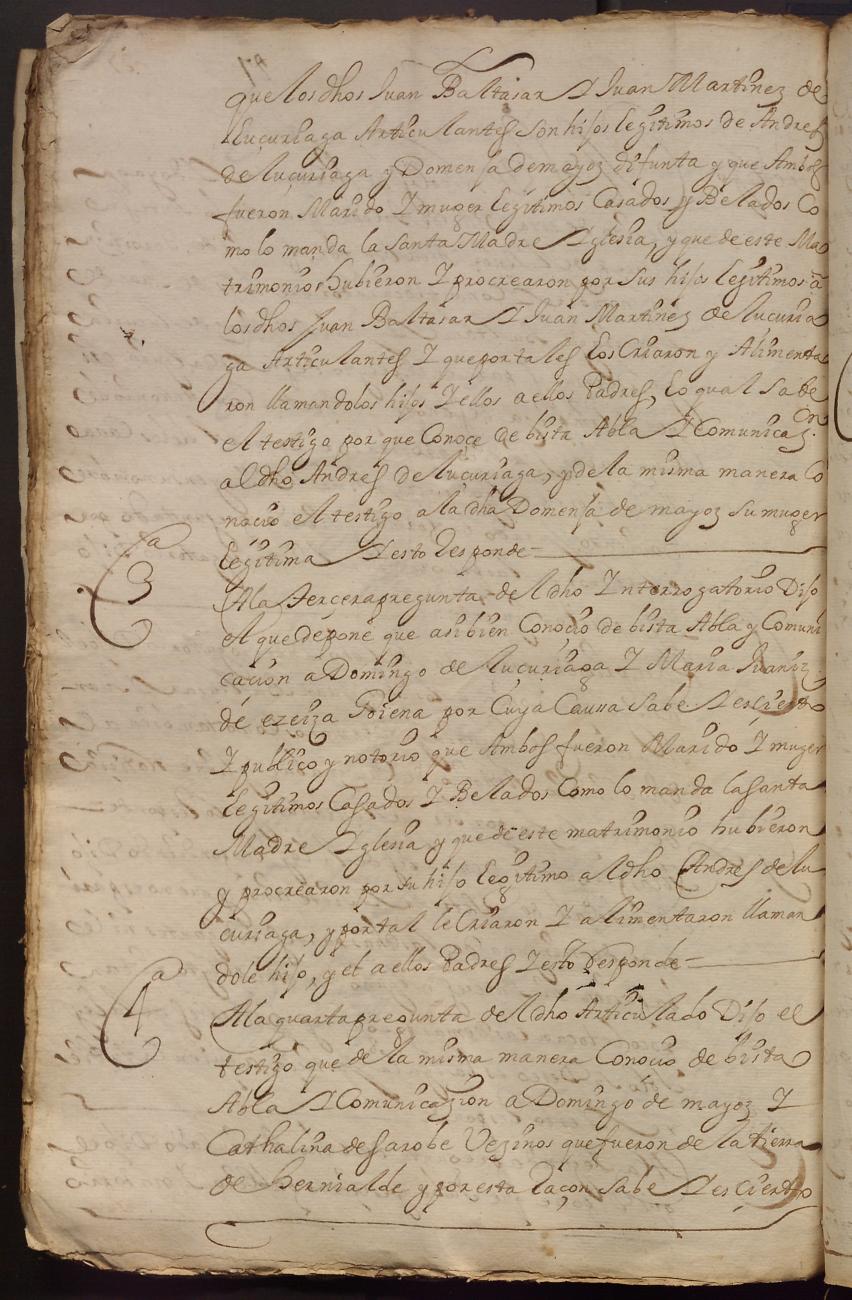 que los dhos Juan Baltasar Y Juan Martinez de
lucuriaga Articulantes son hijos legitimos de Andres
de lucuriaga y Domenja de mayoz difunta y que Ambos
fueron Marido Y muger legitimos Casados y Belados Co
mo lo manda la santa Madre Yglesia, y que de este Ma
trimonio hubieron Y procrearon por sus hijos legitimos a
los dhos Juan Baltasar Y Juan Martinez de lucuria
ga Articulantes Y que por tales los Criaron y Alimenta
ron llamandolos hijos Y ellos a ellos Padres, lo qual sabe
el testigo por que Conoçe de bista Abla Y Comunicaz.on
al dho Andres de lucuriaga, y de la misma manera Co
nacio el testigo a la dha Domenja de mayoz su muger
legitima Y esto Responde
3a
A la tercera pregunta del dho Ynterrogatorio Dijo
el que depone que asibien Conocio de bista Abla y Comuni
cacion a Domingo de lucuriaga Y Maria Juaniz
de ezeiza Goiena por Cuya Caussa sabe Y es cierto
Y publico y notorio que Ambos fueron Marido Y muger
legitimos Casados Y Belados Como lo manda la santa
Madre Yglesia y que de este matrimonio hubieron
y procrearon por su hijo legitimo al dho Andres de lu
curiaga, y por tal le Criaron Y alimentaron llaman
dole hijo, y el a ellos Padres Y esto Responde
4a
A la quarta pregunta del dho Articulado Dijo el
testigo que de la misma manera Conocio de bista
Abla Y Comunicazion a Domingo de mayoz Y
Cathalina de sarobe Vezinos que fueron de la tierra
de Hernialde y por esta Raçon sabe Y es cierto